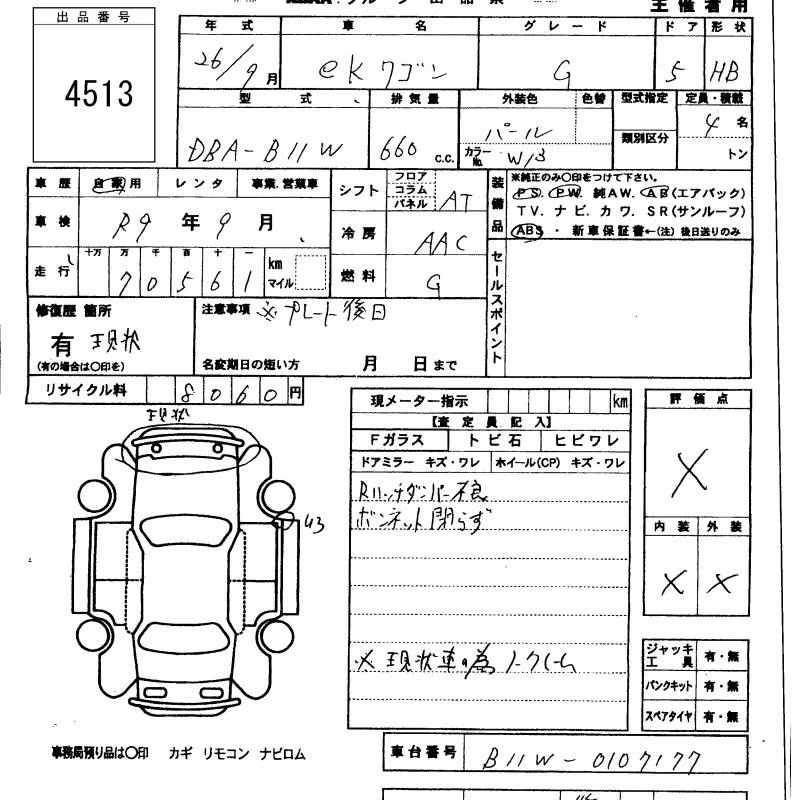 主催者用
出品番号
4513
年式 車名 グレード ドア 形状
26/9月 eKワゴン G 5 HB
型式 排気量 外装色 色替 型式指定 定員・積載
DBA-B11W 660 c.c. パール 類別区分 4名
カラーNo. W13 トン
車歴 自家用 レンタ 事業.営業車 シフト フロア コラム パネル AT
車検 R9年9月 冷房 AAC
走行 十万 万 千 百 十 一 km マイル 燃料 G
70561
装備品 ※純正のみ○印をつけて下さい。
PS. PW. 純AW. AB(エアバック)
TV. ナビ. カワ. SR(サンルーフ)
ABS ・ 新車保証書←(注) 後日送りのみ
セールスポイント
修復歴 箇所 注意事項 ※プレート後日
有 現状
(有の場合は○印を) 名変期日の短い方 月 日まで
リサイクル料 8060円
現状
U3
現メーター指示 km
【査定員記入】
Fガラス トビ石 ヒビワレ
ドアミラー キズ・ワレ ホイール(CP) キズ・ワレ
Rハッチダンパー不良
ボンネット閉らず
※現状車の為ノークレーム
評価点
X
内装 外装
X X
ジャッキ工具 有・無
パンクキット 有・無
スペアタイヤ 有・無
事務局預り品は○印 カギ リモコン ナビロム
車台番号 B11W-0107177